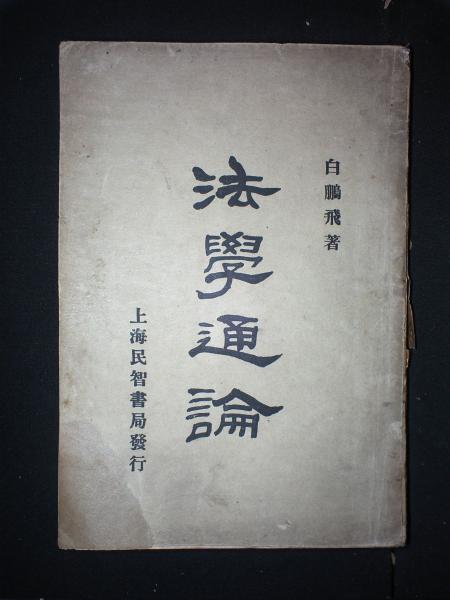 白鵬飛著
法學通論
上海民智書局發行